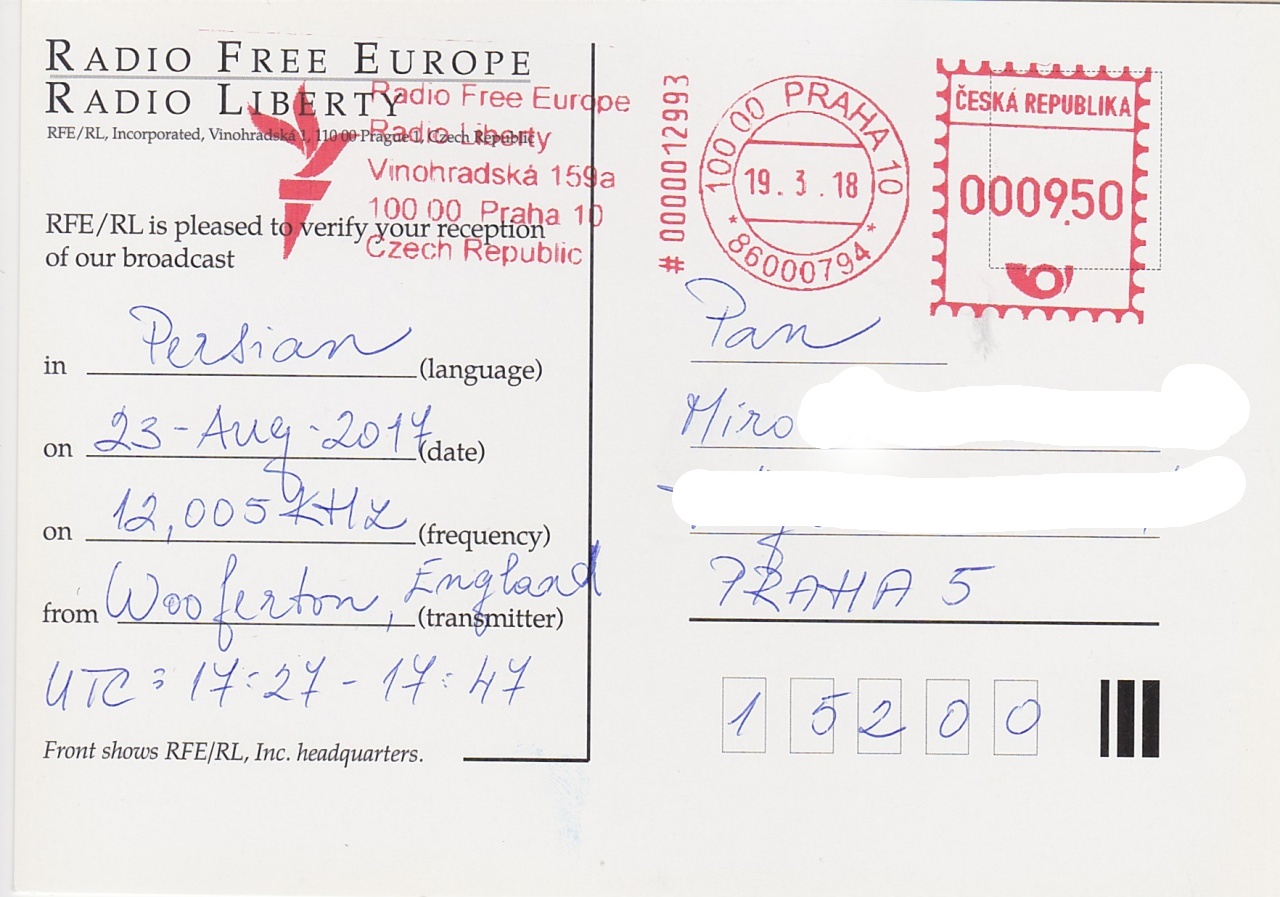 RADIO FREE EUROPE
RADIO LIBERTY
RFE/RL, Incorporated, Vinohradská 1, 110 00 Prague 1, Czech Republic
Radio Free Europe
Radio Liberty
Vinohradská 159a
100 00 Praha 10
Czech Republic
RFE/RL is pleased to verify your reception
of our broadcast
in Persian (language)
on 23-Aug-2017 (date)
on 12,005 kHz (frequency)
from Wooferton, England (transmitter)
UTC: 17:27 - 17:47
Front shows RFE/RL, Inc. headquarters.
# 0000012993
100 00 PRAHA 10
19.3.18
* 86000794 *
ČESKÁ REPUBLIKA
0009.50
Pan
Miro
PRAHA 5
15200